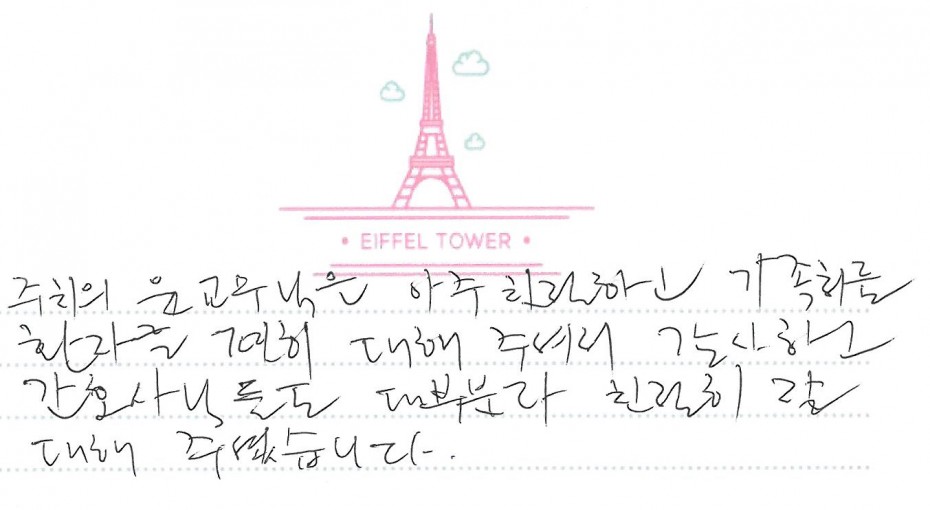 EIFFEL TOWER
주치의 윤교수님은 아주 친절하고
환자를 대해 주셔서 감사하고
간호사님들도 대부분 다 친절히 잘
대해 주셨습니다.